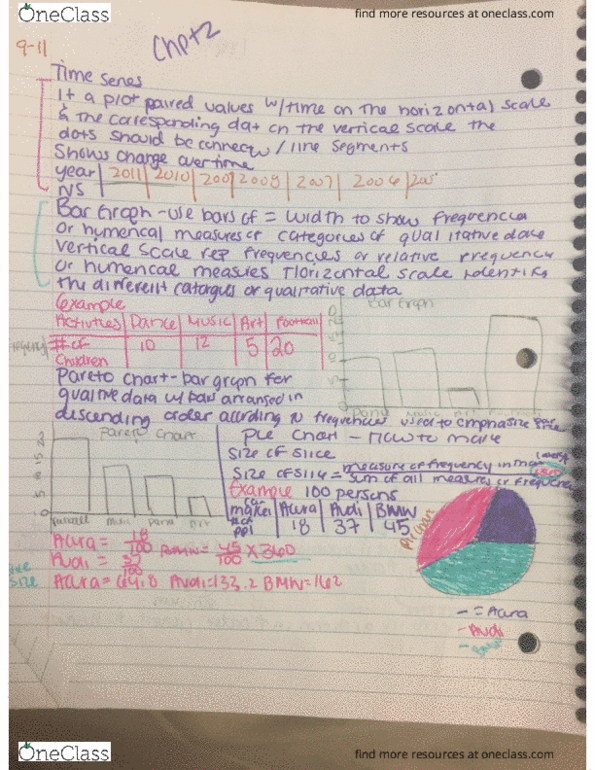 OneClass
find more resources at oneclass.com
9-11
Chpt2
Time Series
It a plot paired values w/time on the horizontal scale
& the corresponding dat on the verticle scale the
dots should be connecw / line segments
Shows change over time
year | 2011 | 2010 | 2009 | 2008 | 2007 | 2006
NS
Bar Graph - use bars of = width to show frequencies
or numerical measures of categories of qualitative data
Vertical Scale rep frequencies or relative frequency
or numerical measures Horizontal scale identifies
the different catorgies or qualitative data
Example
Bar Graph
Activities | Dance | Music | Art | Football
# of | 10 | 12 | 5 | 20
Children
Pareto Chart - bar graph for
qualitive data w/ bars arranged in
descending order according to frequencies used to emphasize
Pareto Chart
Pie Chart - How to make
Size of slice
Size of slice = measure of frequency in
sum of all measures or frequency
Example 100 persons
20
15
10
5
0
Football Music Dance Art
car makes | Acura | Audi | BMW
# of ppl | 18 | 37 | 45
Pie Chart
Acura = 18/100 BMW = 45/100 x 360
Audi = 37/100
size Acura = 64.8 Audi = 133.2 BMW = 162
- = Acura
- Audi
- BMW
OneClass
find more resources at oneclass.com